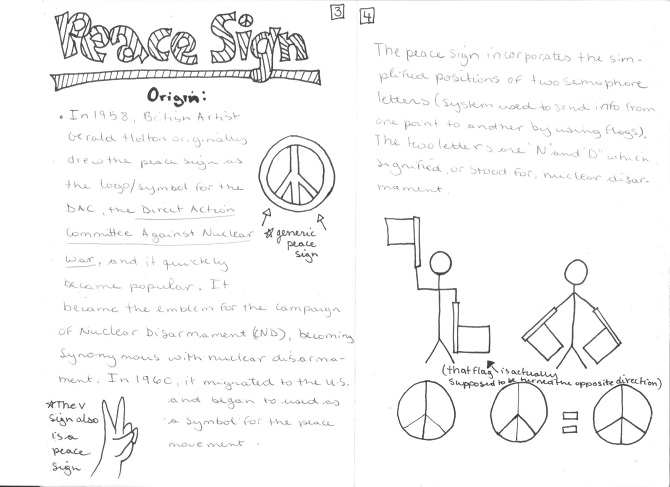 3
Peace Sign
Origin:
• In 1958, British Artist
Gerald Holton originally
drew the peace sign as
the logo/symbol for the
DAC, the Direct Action
Committee Against Nuclear
War, and it quickly
became popular. It
became the emblem for the Campaign
of Nuclear Disarmament (CND), becoming
synonymous with nuclear disarma-
ment. In 1960, it migrated to the U.S.
and began to used as
a symbol for the peace
movement.
* generic
peace
sign
* The V
sign also
is a
peace
sign
4
The peace sign incorporates the sim-
plified positions of two semaphore
letters (system used to send info from
one point to another by using flags).
The two letters are "N" and "D" which
signified, or stood for, nuclear disar-
mament.
(that flag is actually
supposed to be turned the opposite direction)
=